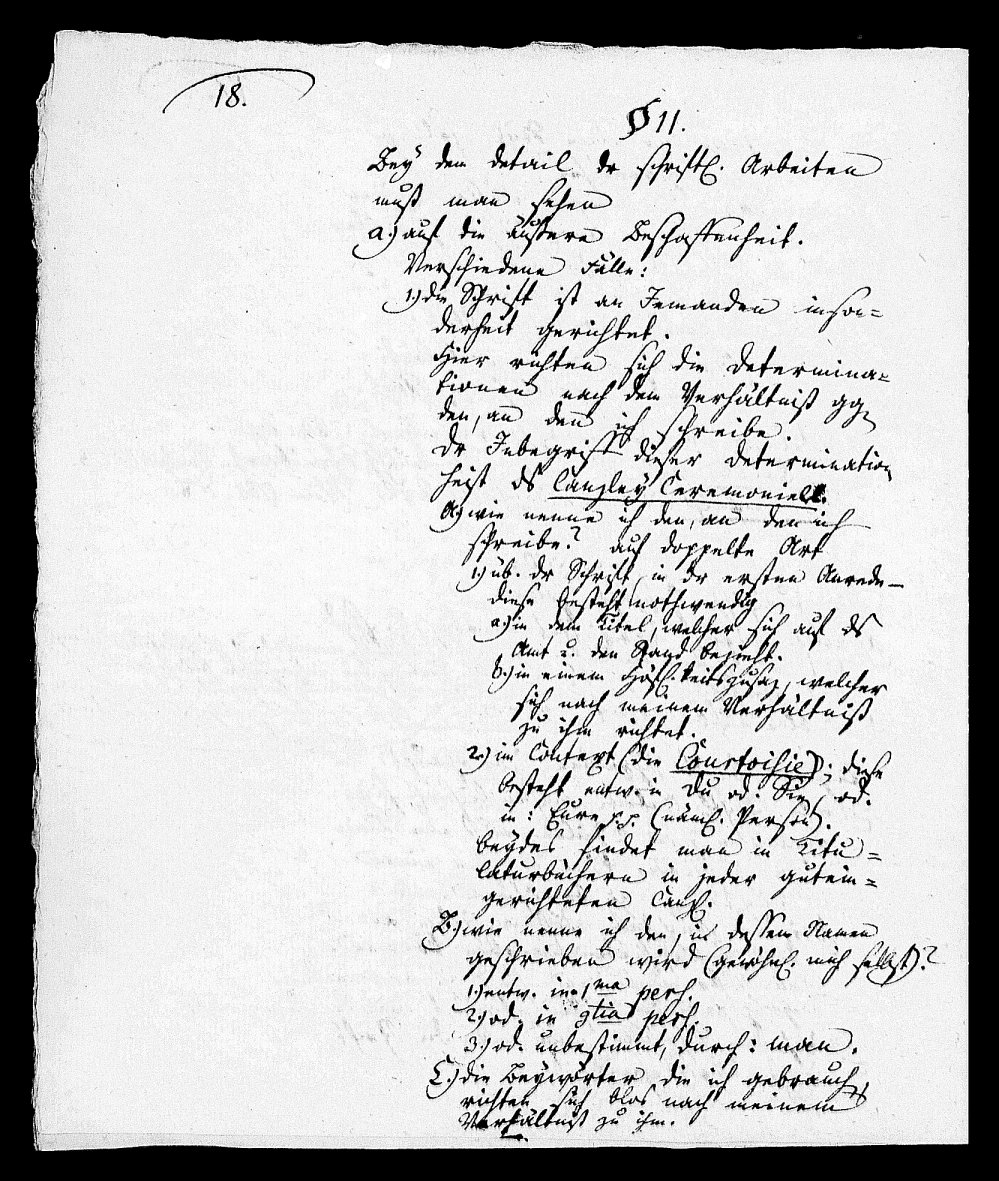 18.
§ 11.
Bey dem detail dr schriftl. Arbeiten
muß man sehen
a.) auf die äußere Beschaffenheit.
Verschiedene Fälle:
1.) die Schrift ist an Jemanden inson=
derheit gerichtet.
Hier richten sich die Determina=
tionen nach dem Verhältniß gg
den, an den ich schreibe.
Dr Inbegriff dieser Determination
heist ds Canzley Ceremoniell.
A.) wie nenne ich den, an den ich
schreibe? auf doppelte Art
1.) üb. dr Schrift, in dr ersten Anrede—
diese besteht nothwendig
a.) in dem Titel, welcher sich auf ds
Amt u. den Stand bezieht.
b.) in einem Höfl.keitszusaz, welcher
sich nach meinem Verhältniß
zu ihm richtet.
2.) im Context (die Courtoisie); diese
besteht entw. in Du od: Sie, od.
in: Eure p.p. (näml. Person).
beydes findet man in Titu=
laturbüchern in jeder gutein=
gerichteten Canzl.
B.) wie nenne ich den, in dessen Namen
geschrieben wird (gewöhnl. mich selbst)?
1.) entw. in 1ma pers.
2.) od. in 3tia pers.
3.) od. unbestimmt, durch: man.
C.) die Beywörter die ich gebrauch,
richten sich blos nach meinem
Verhältniß zu ihm.